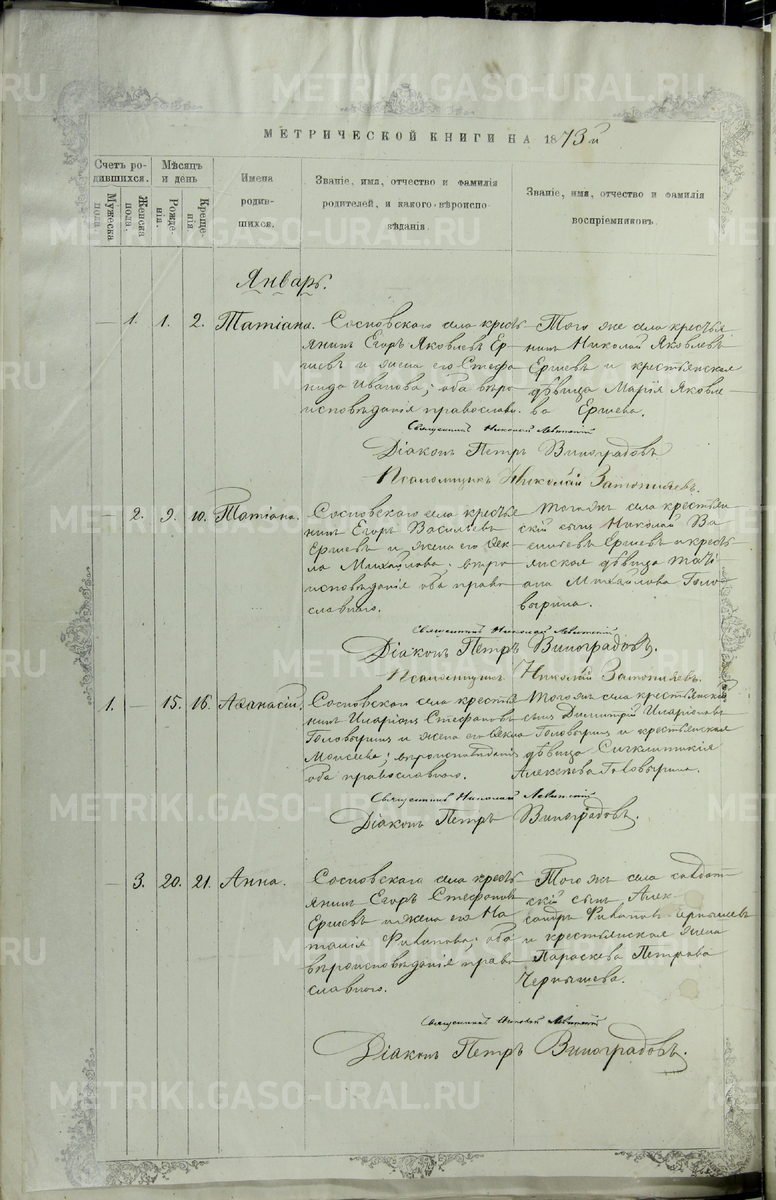 METRIKI.GASO-URAL.RU
МЕТРИЧЕСКОЙ КНИГИ НА 1873й
Счетъ родившихся.
Мужеска пола.
Женска пола.
Мѣсяцъ и день
Рожденія.
Крещенія.
Имена родившихся.
Званіе, имя, отчество и фамилія родителей, и какого вѣроисповѣданія.
Званіе, имя, отчество и фамилія воспріемниковъ.
Январь.
— 1. 1. 2. Татіана.
Сосновскаго села кресть
янинъ Егоръ Яковлевъ Ер
шевъ и жена его Стефа
нида Иванова; оба вѣро
исповѣданія православн.
Того же села крестья
нинъ Николай Яковлевъ
Ершевъ и крестьянская
дѣвица Марія Яковле
ва Ершева.
Священникъ Николай Левитскій
Діаконъ Петръ Виноградовъ
Псаломщикъ Николай Затопляевъ.
— 2. 9. 10. Татіана.
Сосновскаго села крестья
нинъ Егоръ Васильевъ
Ершевъ и жена его Ѳек
ла Михайлова, вѣро
исповѣданія оба право
славнаго.
Тогожъ села крестьян
скій сынъ Николай Ва
сильевъ Ершевъ и кресть
янская дѣвица Таті
ана Михайлова Голо
вырина.
Священникъ Николай Левитскій
Діаконъ Петръ Виноградовъ.
Псаломщикъ Николай Затопляевъ.
1. — 15. 16. Аѳанасій.
Сосновскаго села крестья
нинъ Иларіонъ Стефановъ
Головыринъ и жена его Ѳекла
Моисеева; вѣроисповѣданія
оба православнаго.
Тогожъ села крестьянскій
сынъ Димитрій Иларіоновъ
Головыринъ и крестьянская
дѣвица Сигклитикія
Алексѣева Головырина.
Священникъ Николай Левитскій
Діаконъ Петръ Виноградовъ.
— 3. 20. 21. Анна.
Сосновскаго села кресть
янинъ Егоръ Стефановъ
Ершевъ и жена его На
талія Филипова; оба
вѣроисповѣданія право
славнаго.
Того жъ села солдат
скій сынъ Алек
сандръ Филиповъ Чернышевъ
и крестьянская жена
Параскева Петрова
Чернышева.
Священникъ Николай Левитскій
Діаконъ Петръ Виноградовъ.